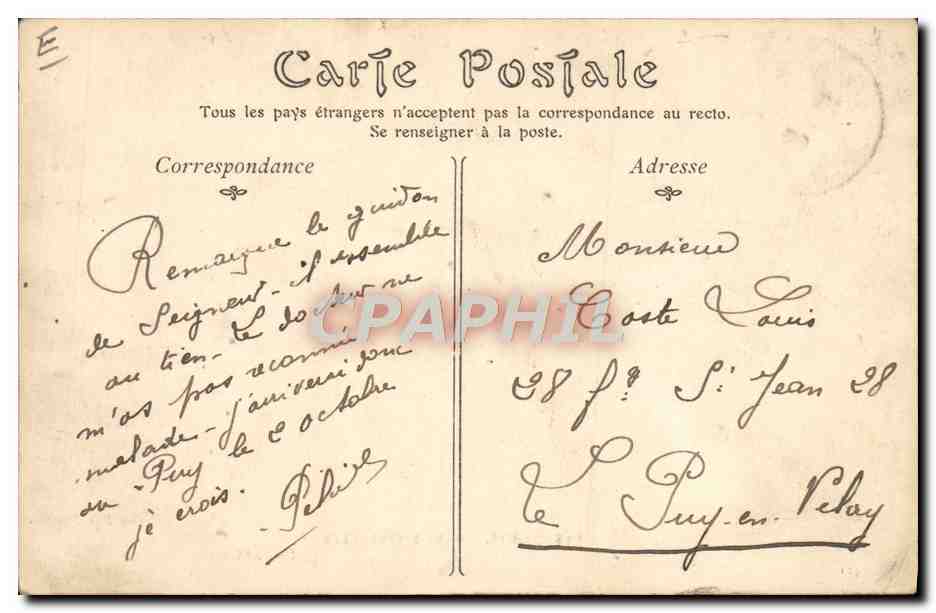 E
Carte Postale
Tous les pays étrangers n'acceptent pas la correspondance au recto.
Se renseigner à la poste.
Correspondance
Remarque le guidon
de Seigneur - il ressemble
au tien - Le docteur ne
m'as pas reconnu
malade - j'arriverai donc
au Puy le 2 octobre
je crois.
Adresse
Monsieur
Coste Louis
28 fg St Jean 28
Le Puy-en-Velay
CPAPHIL